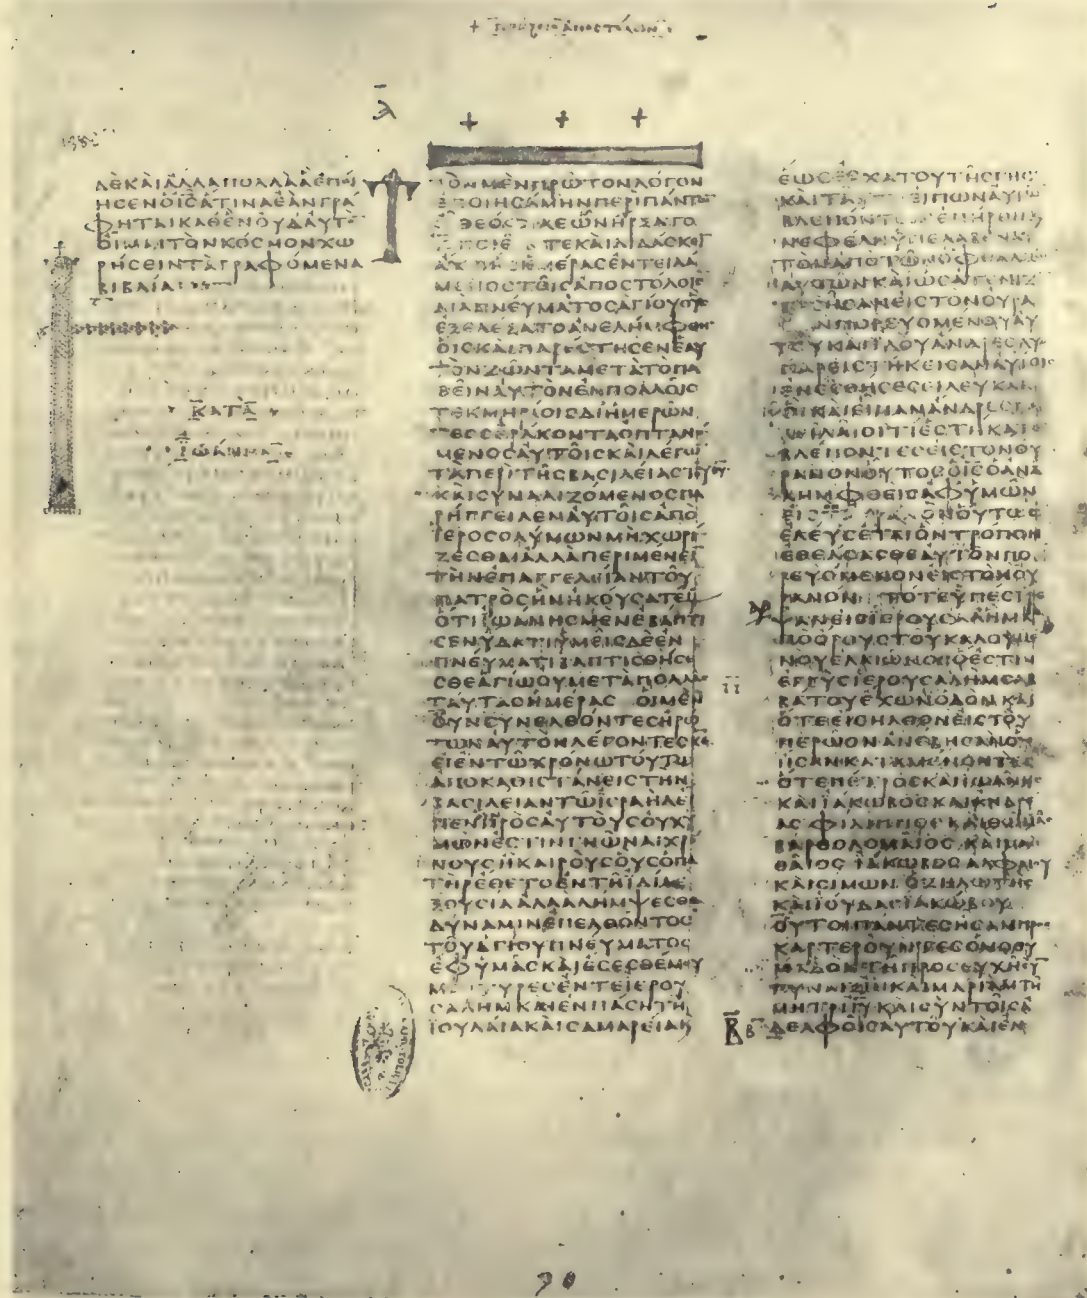 ΠΡΑΞΕΙϹ ΑΠΟϹΤΟΛΩΝ
1382
ΔΕΚΑΙΑΛΛΑΠΟΛΛΑΑΕΠΟΙ
ΗϹΕΝΟΙϹΑΤΙΝΑΕΑΝΓΡΑ
ΦΗΤΑΙΚΑΘΕΝΟΥΔΑΥΤΟ
ΟΙΜΑΙΤΟΝΚΟϹΜΟΝΧΩ
ΡΗϹΕΙΝΤΑΓΡΑΦΟΜΕΝΑ
ΒΙΒΛΙΑ
ΚΑΤΑ
ΙΩΑΝΝΗΝ
ΤΟΝΜΕΝΠΡΩΤΟΝΛΟΓΟΝ
ΕΠΟΙΗϹΑΜΗΝΠΕΡΙΠΑΝΤΩ
ΘΕΟΦΙΛΕΩΝΗΡΞΑΤΟ
ΠΟΙΕΙΝΤΕΚΑΙΔΙΔΑϹΚΕΙ
ΑΧΡΙΗϹΗΜΕΡΑϹΕΝΤΕΙΛΑ
ΜΕΝΟϹΤΟΙϹΑΠΟϹΤΟΛΟΙϹ
ΔΙΑΠΝΕΥΜΑΤΟϹΑΓΙΟΥΟΥϹ
ΕΞΕΛΕΞΑΤΟΑΝΕΛΗΜΦΘΗ
ΟΙϹΚΑΙΠΑΡΕϹΤΗϹΕΝΕΑΥ
ΤΟΝΖΩΝΤΑΜΕΤΑΤΟΠΑ
ΘΕΙΝΑΥΤΟΝΕΝΠΟΛΛΟΙϹ
ΤΕΚΜΗΡΙΟΙϹΔΙΗΜΕΡΩΝ
ΤΕϹϹΕΡΑΚΟΝΤΑΟΠΤΑΝΟ
ΜΕΝΟϹΑΥΤΟΙϹΚΑΙΛΕΓΩ
ΤΑΠΕΡΙΤΗϹΒΑϹΙΛΕΙΑϹΤΟΥΘΥ
ΚΑΙϹΥΝΑΛΙΖΟΜΕΝΟϹΠΑ
ΡΗΓΓΕΙΛΕΝΑΥΤΟΙϹΑΠΟ
ΙΕΡΟϹΟΛΥΜΩΝΜΗΧΩΡΙ
ΖΕϹΘΑΙΑΛΛΑΠΕΡΙΜΕΝΕΙ
ΤΗΝΕΠΑΓΓΕΛΕΙΑΝΤΟΥ
ΠΑΤΡΟϹΗΝΗΚΟΥϹΑΤΕΜΟΥ
ΟΤΙΙΩΑΝΗϹΜΕΝΕΒΑΠΤΙ
ϹΕΝΥΔΑΤΙΥΜΕΙϹΔΕΕΝ
ΠΝΕΥΜΑΤΙΒΑΠΤΙϹΘΗϹΕ
ϹΘΕΑΓΙΩΟΥΜΕΤΑΠΟΛΛΑϹ
ΤΑΥΤΑϹΗΜΕΡΑϹ ΟΙΜΕΝ
ΟΥΝϹΥΝΕΛΘΟΝΤΕϹΗΡΩ
ΤΩΝΑΥΤΟΝΛΕΓΟΝΤΕϹΚΕ
ΕΙΕΝΤΩΧΡΟΝΩΤΟΥΤΩ
ΑΠΟΚΑΘΙϹΤΑΝΕΙϹΤΗΝ
ΒΑϹΙΛΕΙΑΝΤΩΙϹΡΑΗΛΕΙ
ΠΕΝΠΡΟϹΑΥΤΟΥϹΟΥΧΥ
ΜΩΝΕϹΤΙΝΓΝΩΝΑΙΧΡΟ
ΝΟΥϹΗΚΑΙΡΟΥϹΟΥϹΟΠΑ
ΤΗΡΕΘΕΤΟΕΝΤΗΙΔΙΑΕ
ΞΟΥϹΙΑΑΛΛΑΛΗΜΨΕϹΘΕ
ΔΥΝΑΜΙΝΕΠΕΛΘΟΝΤΟϹ
ΤΟΥΑΓΙΟΥΠΝΕΥΜΑΤΟϹ
ΕΦΥΜΑϹΚΑΙΕϹΕϹΘΕΜΟΥ
ΜΑΡΤΥΡΕϹΕΝΤΕΙΕΡΟΥ
ϹΑΛΗΜΚΑΙΕΝΠΑϹΗΤΗ
ΙΟΥΔΑΙΑΚΑΙϹΑΜΑΡΕΙΑΚ
ΕΩϹΕϹΧΑΤΟΥΤΗϹΓΗϹ
ΚΑΙΤΑΥΤΑΕΙΠΩΝΑΥΤΩ
ΒΛΕΠΟΝΤΩΝΕΠΗΡΘΗΚ
ΝΕΦΕΛΗΥΠΕΛΑΒΕΝΑΥ
ΤΟΝΑΠΟΤΩΝΟΦΘΑΛΜΩ
ΑΥΤΩΝΚΑΙΩϹΑΤΕΝΙΖ
ΤΕϹΗϹΑΝΕΙϹΤΟΝΟΥΡΑ
ΝΟΝΠΟΡΕΥΟΜΕΝΟΥΑΥ
ΤΟΥΚΑΙΙΔΟΥΑΝΔΡΕϹΔΥ
ΠΑΡΕΙϹΤΗΚΕΙϹΑΝΑΥΤΟΙϹ
ΕΝΕϹΘΗϹΕϹΙΛΕΥΚΑΙϹ
ΟΙΚΑΙΕΙΠΑΝΑΝΔΡΕϹΓΑ
ΛΕΙΛΑΙΟΙΤΙΕϹΤΗΚΑΤΕ
ΒΛΕΠΟΝΤΕϹΕΙϹΤΟΝΟΥ
ΡΑΝΟΝΟΥΤΟϹΟΙϹΟΑΝΑ
ΛΗΜΦΘΕΙϹΑΦΥΜΩΝ
ΕΙϹΤΟΝΟΥΡΑΝΟΝΟΥΤΩϹ
ΕΛΕΥϹΕΤΑΙΟΝΤΡΟΠΟΝ
ΕΘΕΑϹΑϹΘΕΑΥΤΟΝΠΟ
ΡΕΥΟΜΕΝΟΝΕΙϹΤΟΝΟΥ
ΡΑΝΟΝ ΤΟΤΕΥΠΕϹΤΡΕ
ΨΑΝΕΙϹΙΕΡΟΥϹΑΛΗΜΑ
ΠΟΟΡΟΥϹΤΟΥΚΑΛΟΥΜΕ
ΝΟΥΕΛΑΙΩΝΟϹΟΕϹΤΙΝ
ΕΓΓΥϹΙΕΡΟΥϹΑΛΗΜϹΑΒ
ΒΑΤΟΥΕΧΩΝΟΔΟΝΚΑΙ
ΟΤΕΕΙϹΗΛΘΟΝΕΙϹΤΟΥ
ΠΕΡΩΟΝΑΝΕΒΗϹΑΝΟΥ
ΗϹΑΝΚΑΤΑΜΕΝΟΝΤΕϹ
ΟΤΕΠΕΤΡΟϹΚΑΙΙΩΑΝΗϹ
ΚΑΙΙΑΚΩΒΟϹΚΑΙΑΝΔΡΕ
ΑϹΦΙΛΙΠΠΟϹΚΑΙΘΩΜΑϹ
ΒΑΡΘΟΛΟΜΑΙΟϹΚΑΙΜΑ
ΘΘΑΙΟϹΙΑΚΩΒΟϹΑΛΦΑΙΟΥ
ΚΑΙϹΙΜΩΝΟΖΗΛΩΤΗϹ
ΚΑΙΙΟΥΔΑϹΙΑΚΩΒΟΥ
ΟΥΤΟΙΠΑΝΤΕϹΗϹΑΝΠΡΟϹ
ΚΑΡΤΕΡΟΥΝΤΕϹΟΜΟΘΥ
ΜΑΔΟΝΤΗΠΡΟϹΕΥΧΗϹΥ
ΓΥΝΑΙΞΙΝΚΑΙΜΑΡΙΑΜΤΗ
ΜΗΤΡΙΙΥΚΑΙϹΥΝΤΟΙϹΑ
ΔΕΛΦΟΙϹΑΥΤΟΥΚΑΙΕΝ